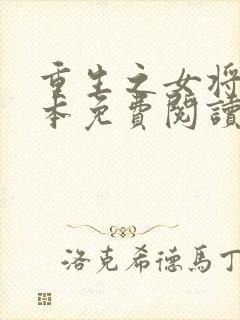 重生之女將
本免費閱讀
洛克希德馬丁